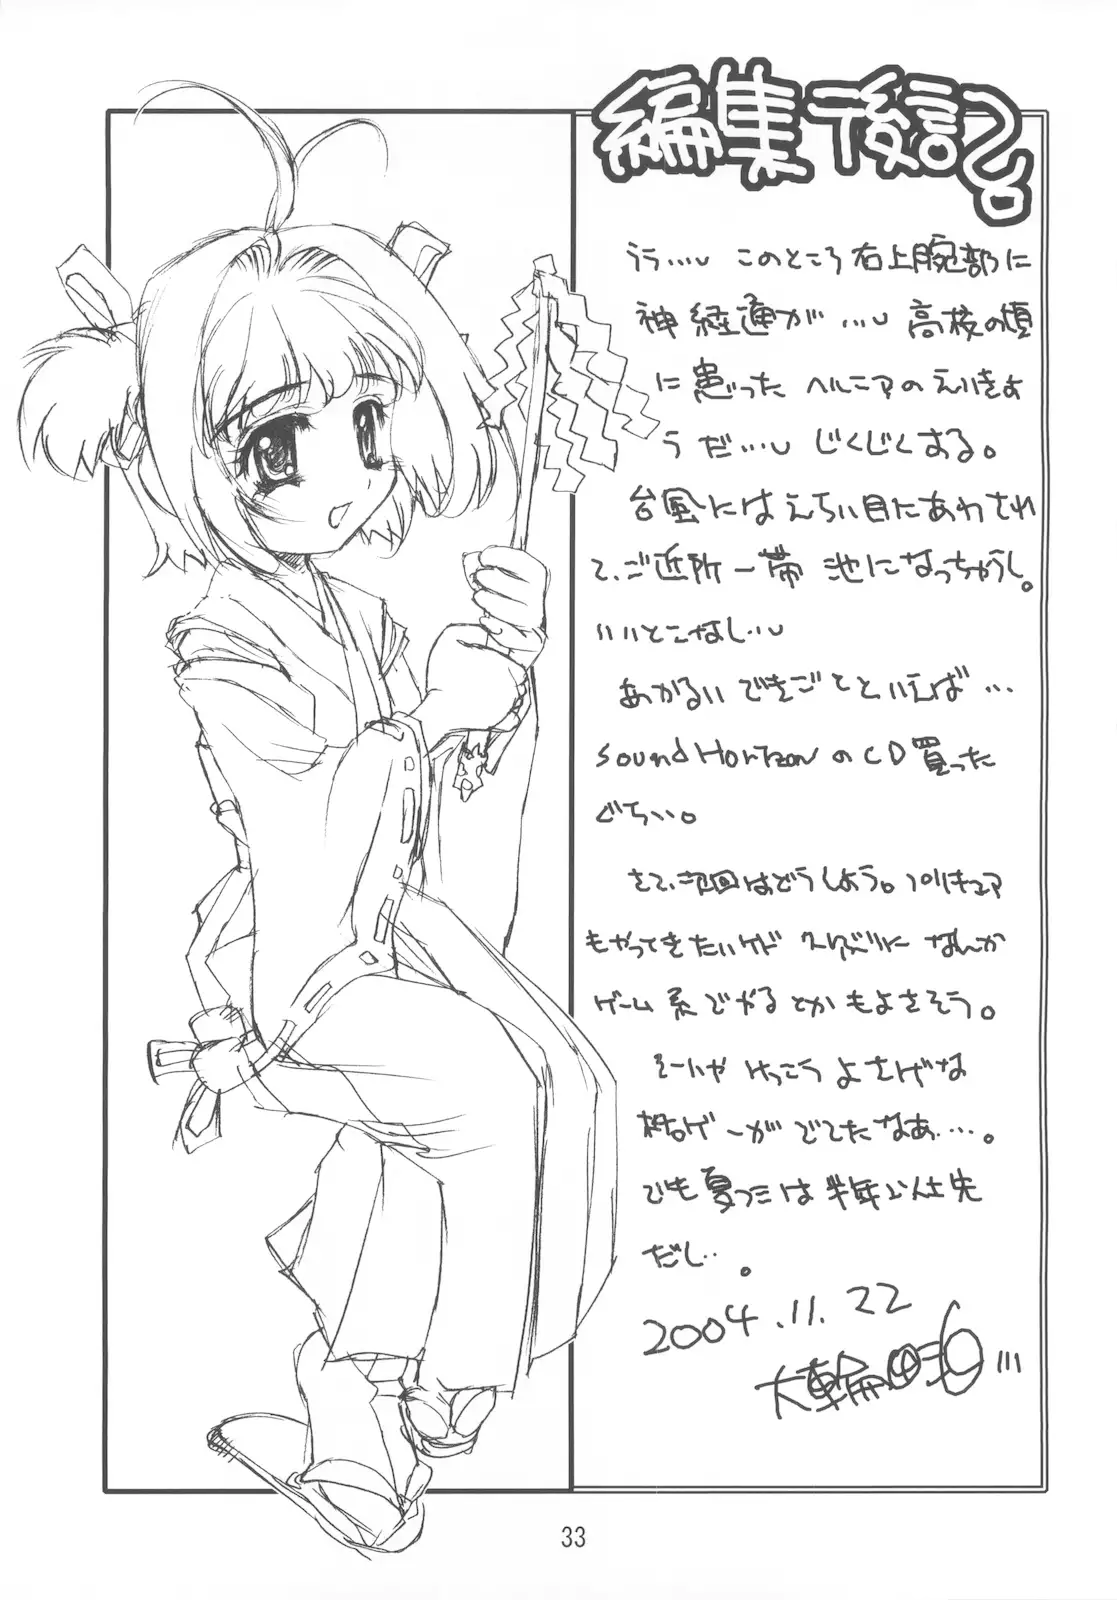 編集後記。
うう…、 このところ右上腕部に
神経通が …、 高校の頃
に患った ヘルニアのえいきょ
うだ…、 じくじくする。
台風にはえらい目にあわされ
て、ご近所一帯 池になっちゃうし。
いいとこなし…、
あかるい できごとといえば…
Sound HorizonのCD買った
ぐらい。
さて、次回はどうしよう。プリキュア
もやってきたいケド なんか
ゲーム系でやるとかもよさそう。
そーいや けっこう よさげな
格ゲーがでてたなあ…。
でも夏コミは半年以上先
だし…。
2004.11.22
大輪田
33